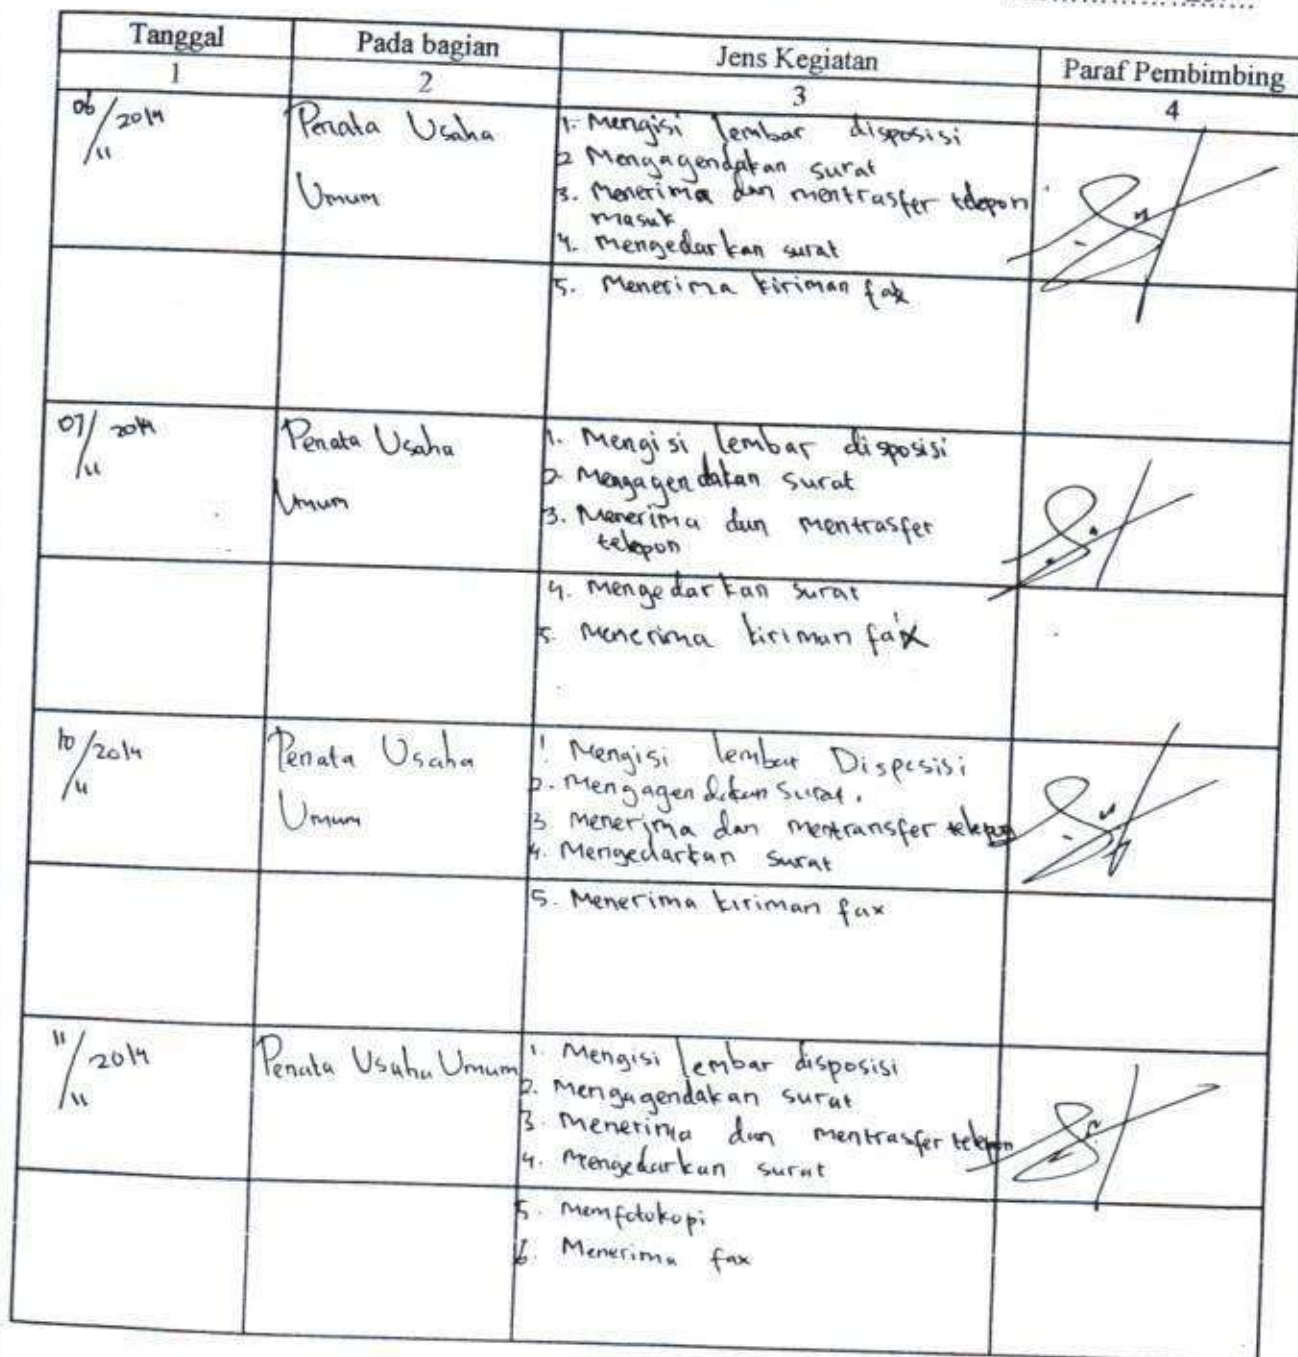 Tanggal Pada bagian Jens Kegiatan Paraf Pembimbing
1 2 3 4
06/11 2014 Penata Usaha Umum
1. Mengisi lembar disposisi
2 Mengagendakan surat
3. Menerima dan mentrasfer telepon
masuk
4. Mengedarkan surat
5. Menerima kiriman fax
07/11 2014 Penata Usaha Umum
1. Mengisi lembar disposisi
2. Mengagendakan surat
3. Menerima dan mentrasfer
telepon
4. Mengedarkan surat
5. Menerima kiriman fax
10/11 2014 Penata Usaha Umum
1 Mengisi lembar Disposisi
2. Mengagendakan surat.
3 Menerima dan mentransfer telepon
4. Mengedarkan surat
5. Menerima kiriman fax
11/11 2014 Penata Usaha Umum
1. Mengisi lembar disposisi
2. Mengagendakan surat
3. Menerima dan mentrasfer telepon
4. Mengedarkan surat
5. Memfotokopi
6. Menerima fax